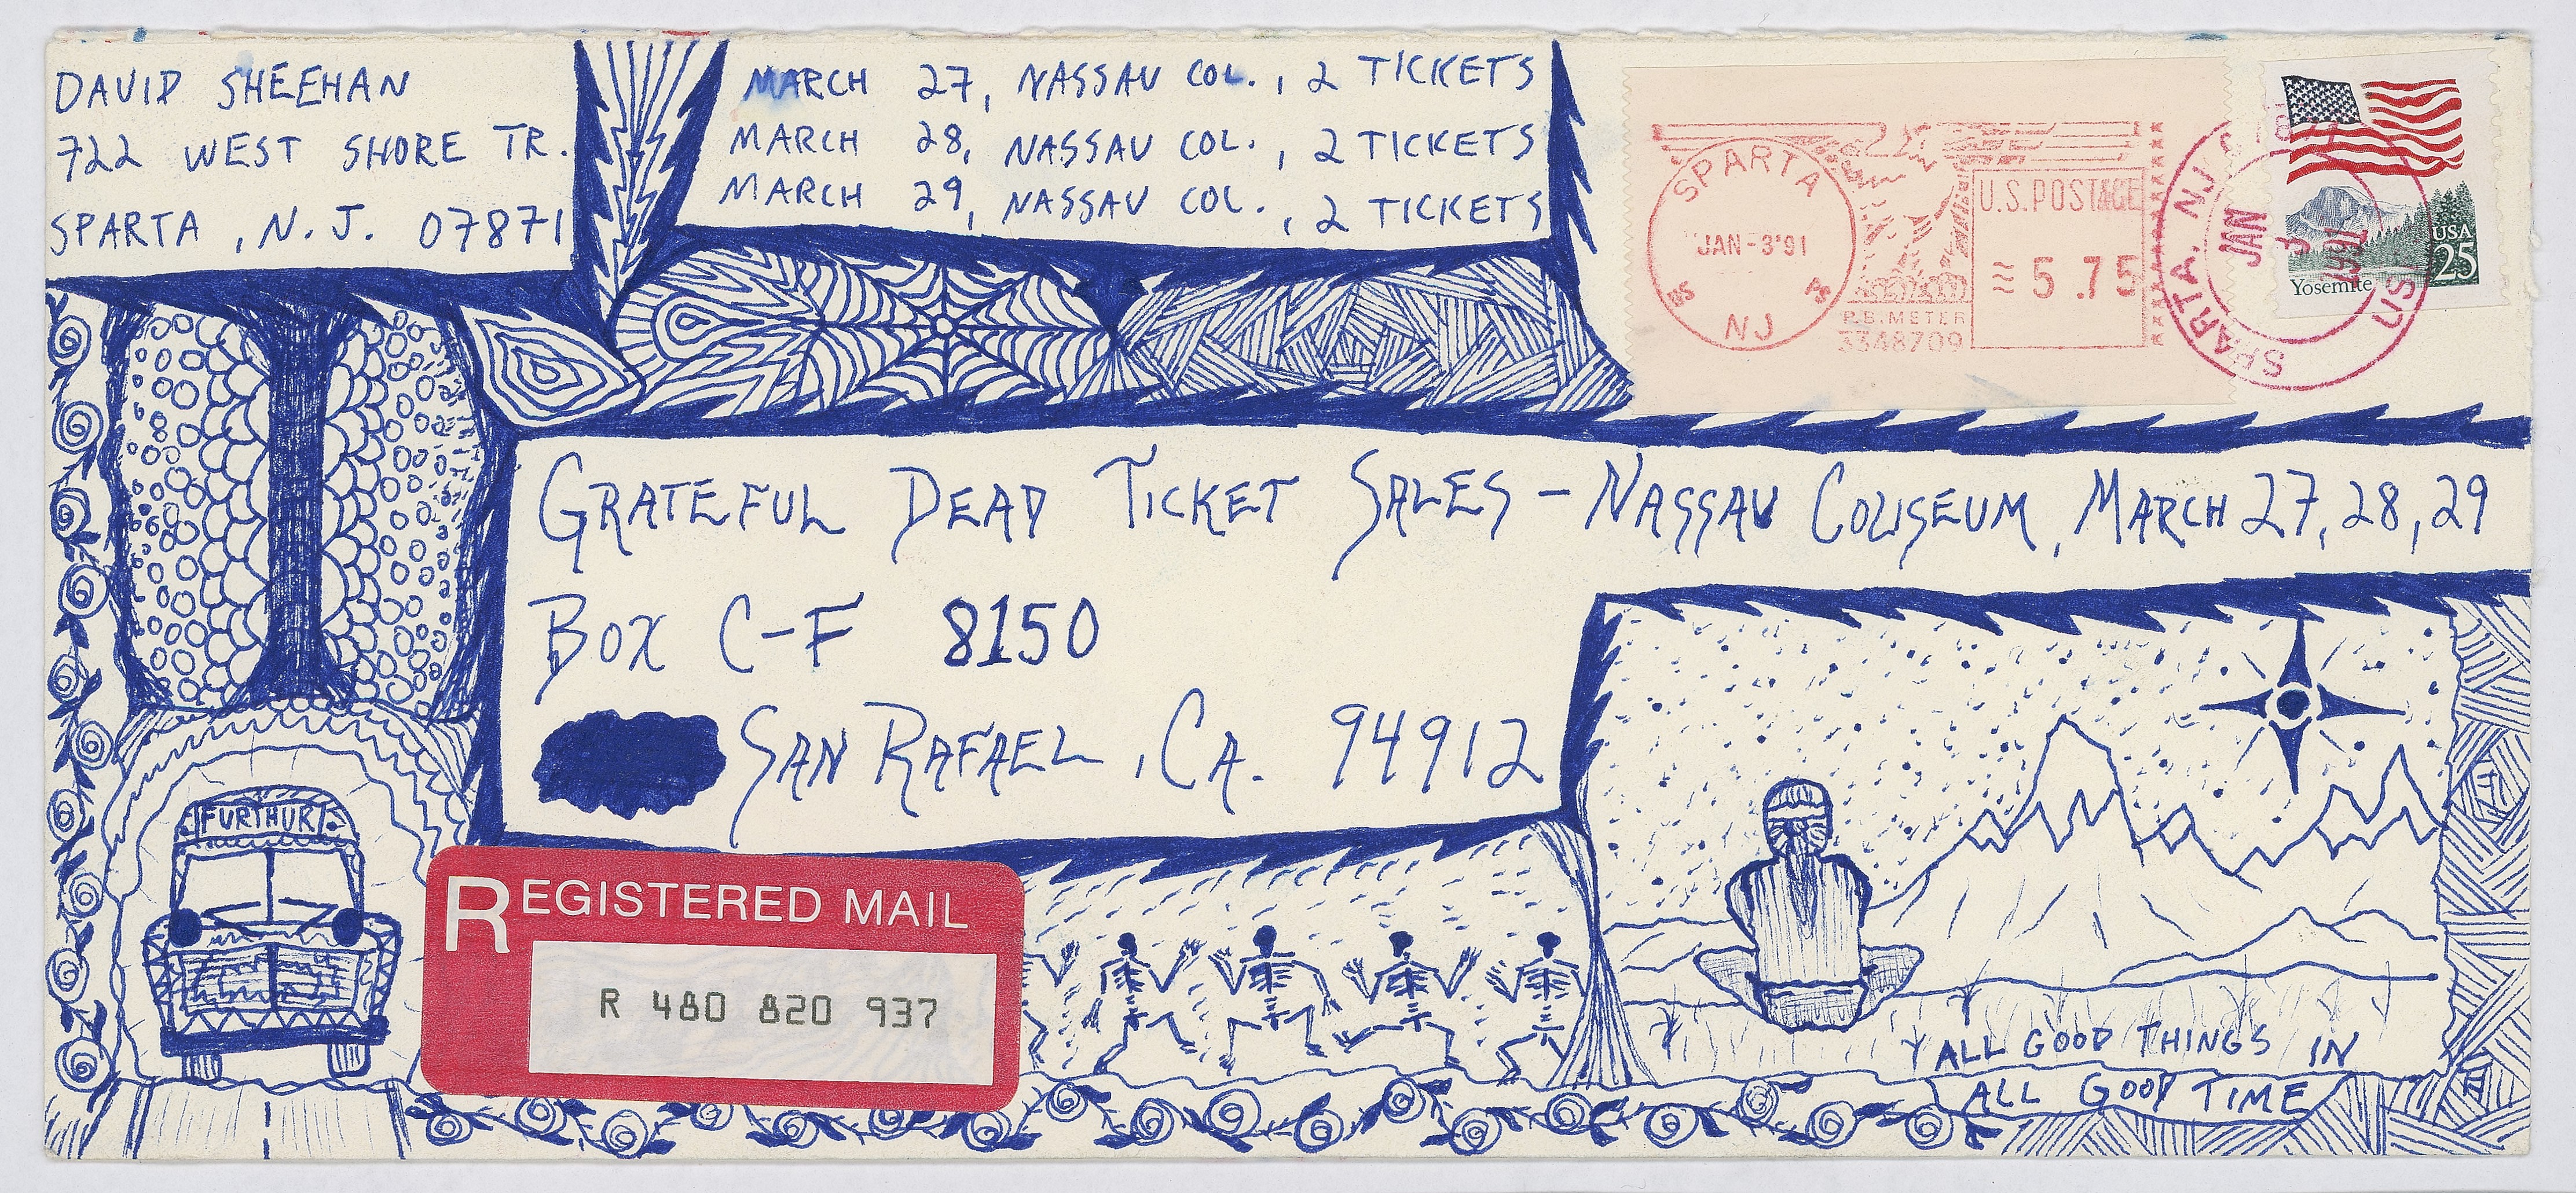 DAVID SHEEHAN
722 WEST SHORE TR.
SPARTA, N.J. 07871
MARCH 27, NASSAU COL., 2 TICKETS
MARCH 28, NASSAU COL., 2 TICKETS
MARCH 29, NASSAU COL., 2 TICKETS
SPARTA
JAN-3'91
NJ
U.S.POSTAGE
5.75
P.B.METER
3348709
SPARTA, NJ
JAN
3
1991
USPS
USA
25
Yosemite
GRATEFUL DEAD TICKET SALES - NASSAU COLISEUM, MARCH 27, 28, 29
BOX C-F 8150
SAN RAFAEL, CA. 94912
FURTHUR
REGISTERED MAIL
R 480 820 937
ALL GOOD THINGS IN
ALL GOOD TIME